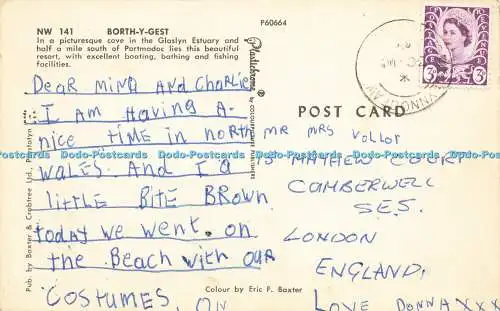 NW 141 BORTH-Y-GEST
In a picturesque cove in the Glaslyn Estuary and
half a mile south of Portmadoc lies this beautiful
resort, with excellent boating, bathing and fishing
facilities.
P60664
Plastichrome
®
Pub. by Baxter & Crabtree Ltd., Prestatyn
POST CARD
3D
3D
DEAR MIND AND CHARLIE
I AM HAVING A
nice TIME IN NORTH
WALES. AND I A
LITTLE BITE BROWN
TODAY WE WENT ON
THE BEACH WITH OUR
COSTUMES. ON
MR MRS
15 MATHEW COURT
CAMBERWELL
S.E.5.
LONDON
ENGLAND.
LOVE DONNA XXX
Colour by Eric F. Baxter
Dodo-Postcards Dodo-Postcards Dodo-Postcards Dodo-Postcards Dodo-Postcards